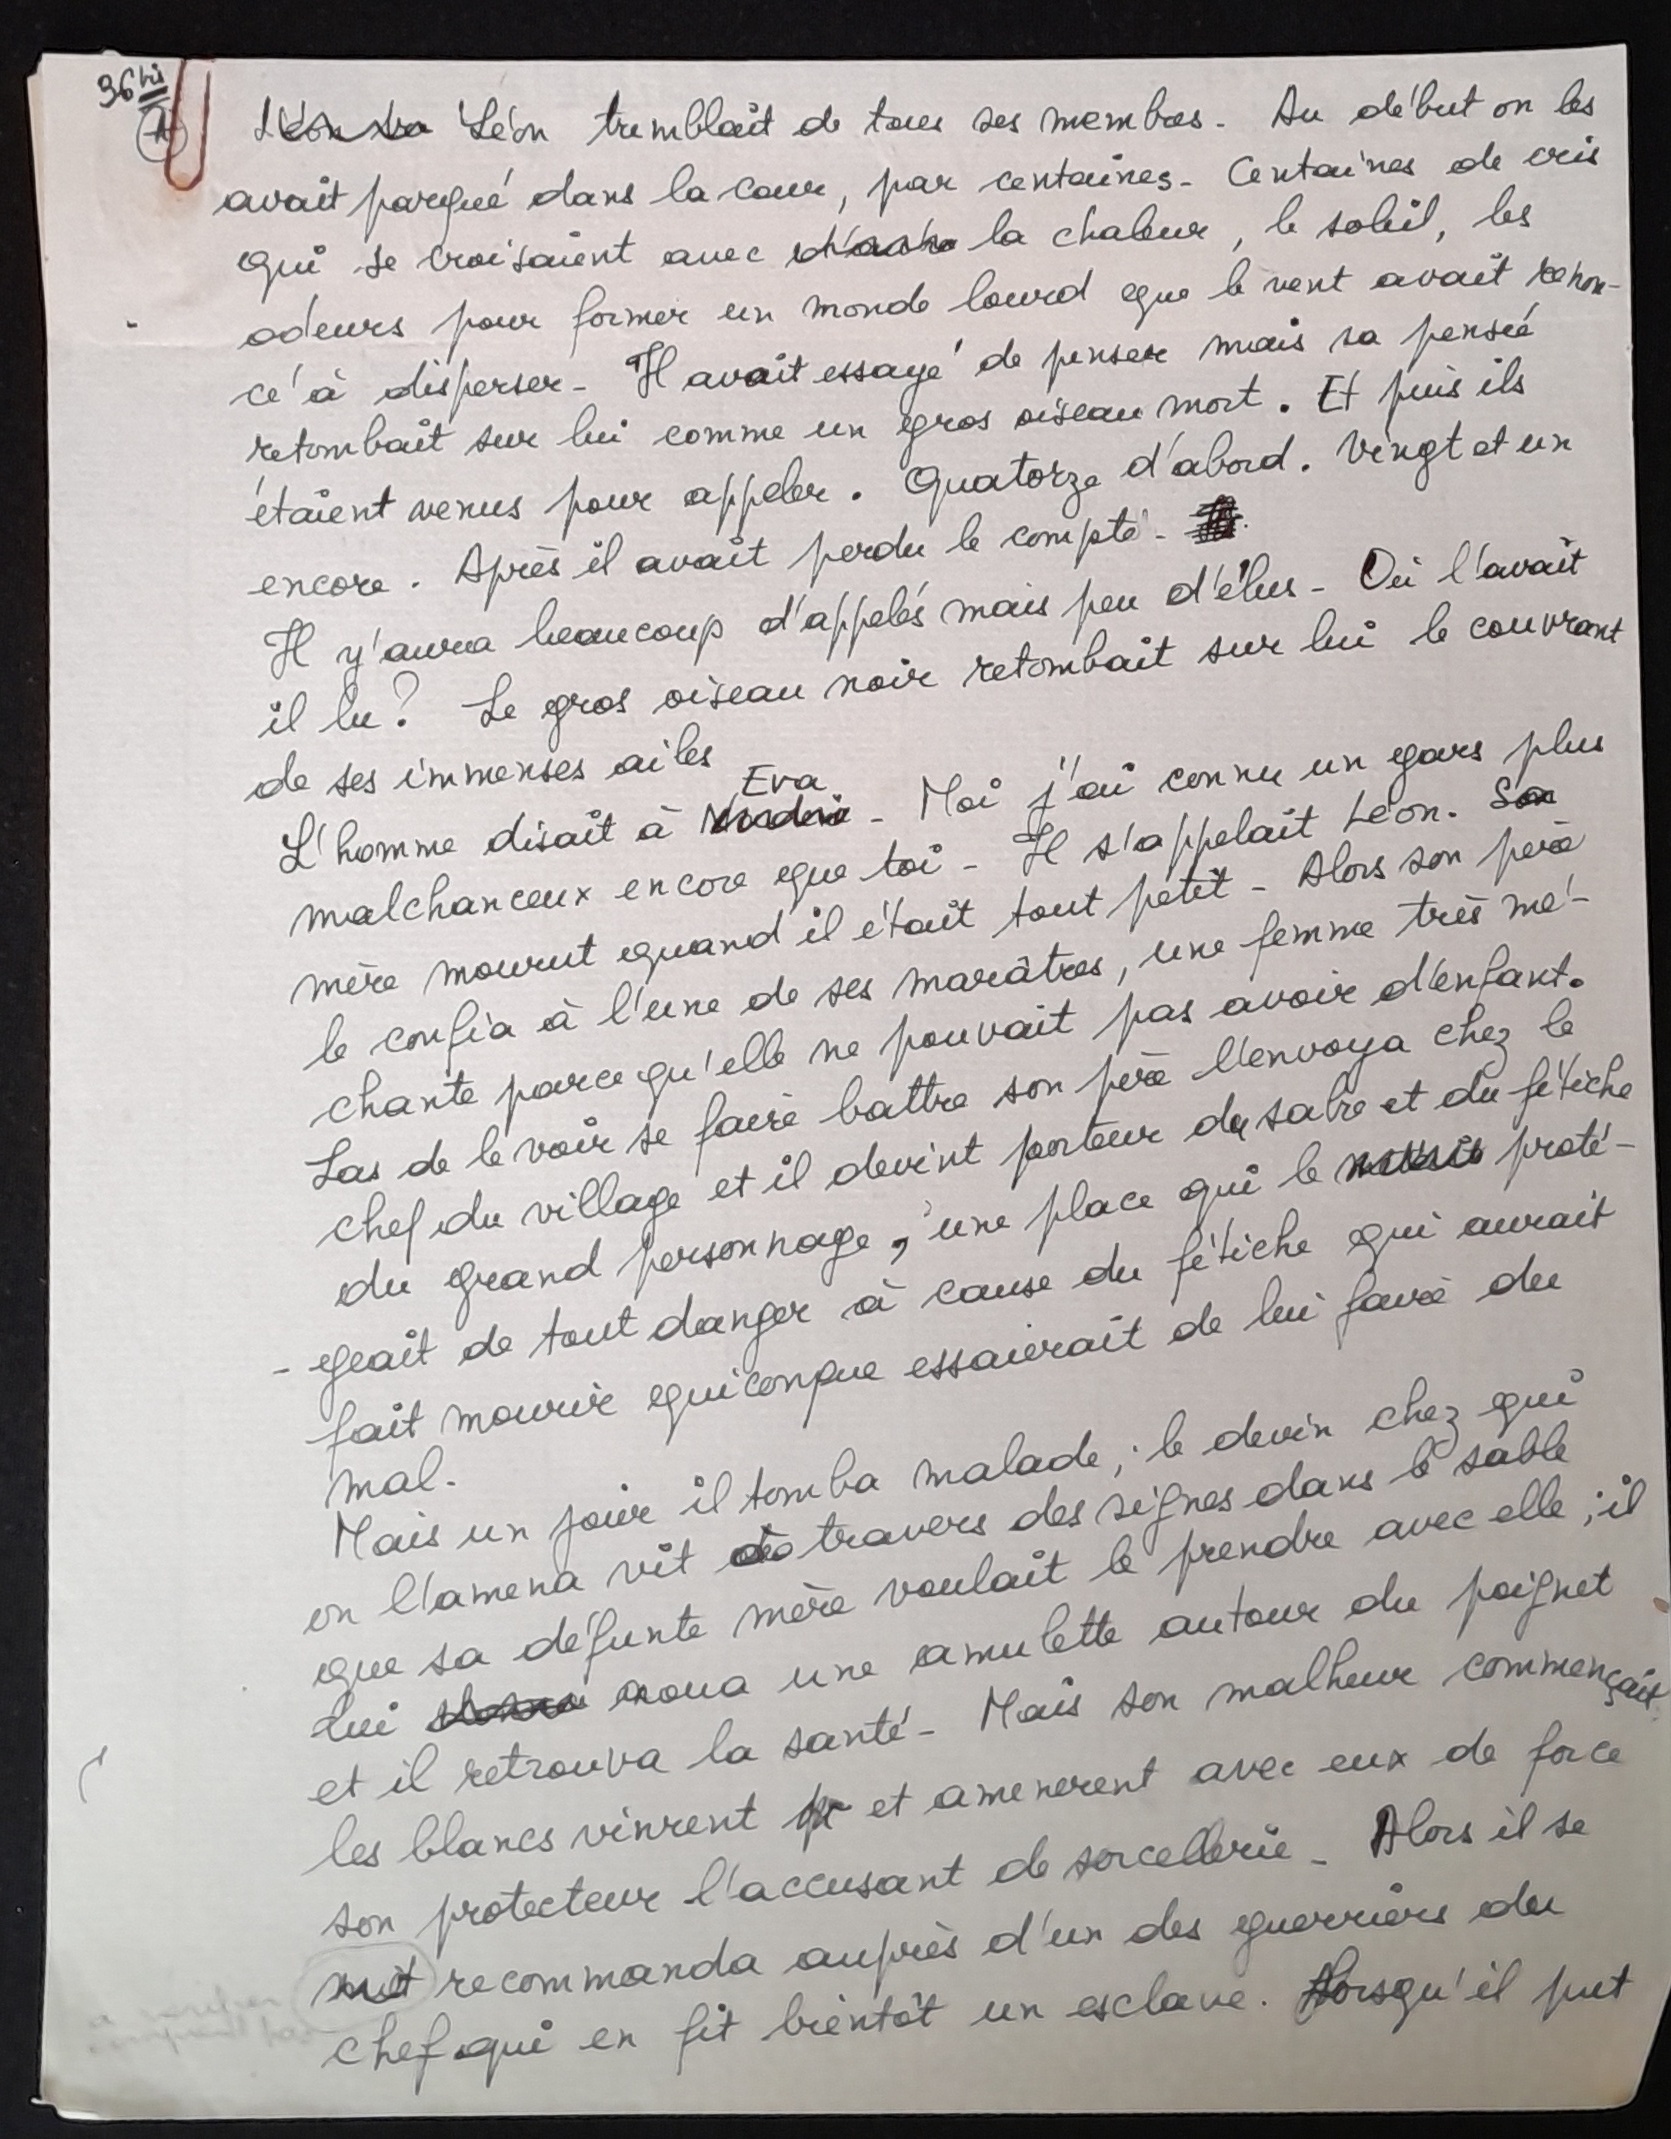 36 bis
Léon tremblait de tous ses membres - Au début on les
avait parqué dans la cour, par centaines - Centaines de cris
qui se croisaient avec la chaleur, le soleil, les
odeurs pour former un monde lourd que le vent avait renon-
cé à disperser - Il avait essayé de penser mais sa pensée
retombait sur lui comme un gros oiseau mort. Et puis ils
étaient venus pour appeler. Quatorze d'abord. Vingt et un
encore. Après il avait perdu le compte -
Il y'aura beaucoup d'appelés mais peu d'élus - Où l'avait
il lu? Le gros oiseau noir retombait sur lui le couvrant
de ses immenses ailes
Eva
L'homme disait à - Moi j'ai connu un gars plus
malchanceux encore que toi - Il s'appelait Léon. Sa
mère mourut quand il était tout petit - Alors son père
le confia à l'une de ses marâtres, une femme très mé-
chante parce qu'elle ne pouvait pas avoir d'enfant.
Las de le voir se faire battre son père l'envoya chez le
chef du village et il devint porteur du sabre et du fétiche
du grand personnage, une place qui le proté-
- geait de tout danger à cause du fétiche qui aurait
fait mourir quiconque essaierait de lui faire du
mal -
Mais un jour il tomba malade ; le devin chez qui
on l'amena vit à travers des signes dans le sable
que sa défunte mère voulait le prendre avec elle ; il
lui noua une amulette autour du poignet
et il retrouva la santé - Mais son malheur commençait
les blancs vinrent et amenerent avec eux de force
son protecteur l'accusant de sorcellerie - Alors il se
recommanda auprès d'un des guerriers du
chef qui en fit bientôt un esclave. Lorsqu'il put